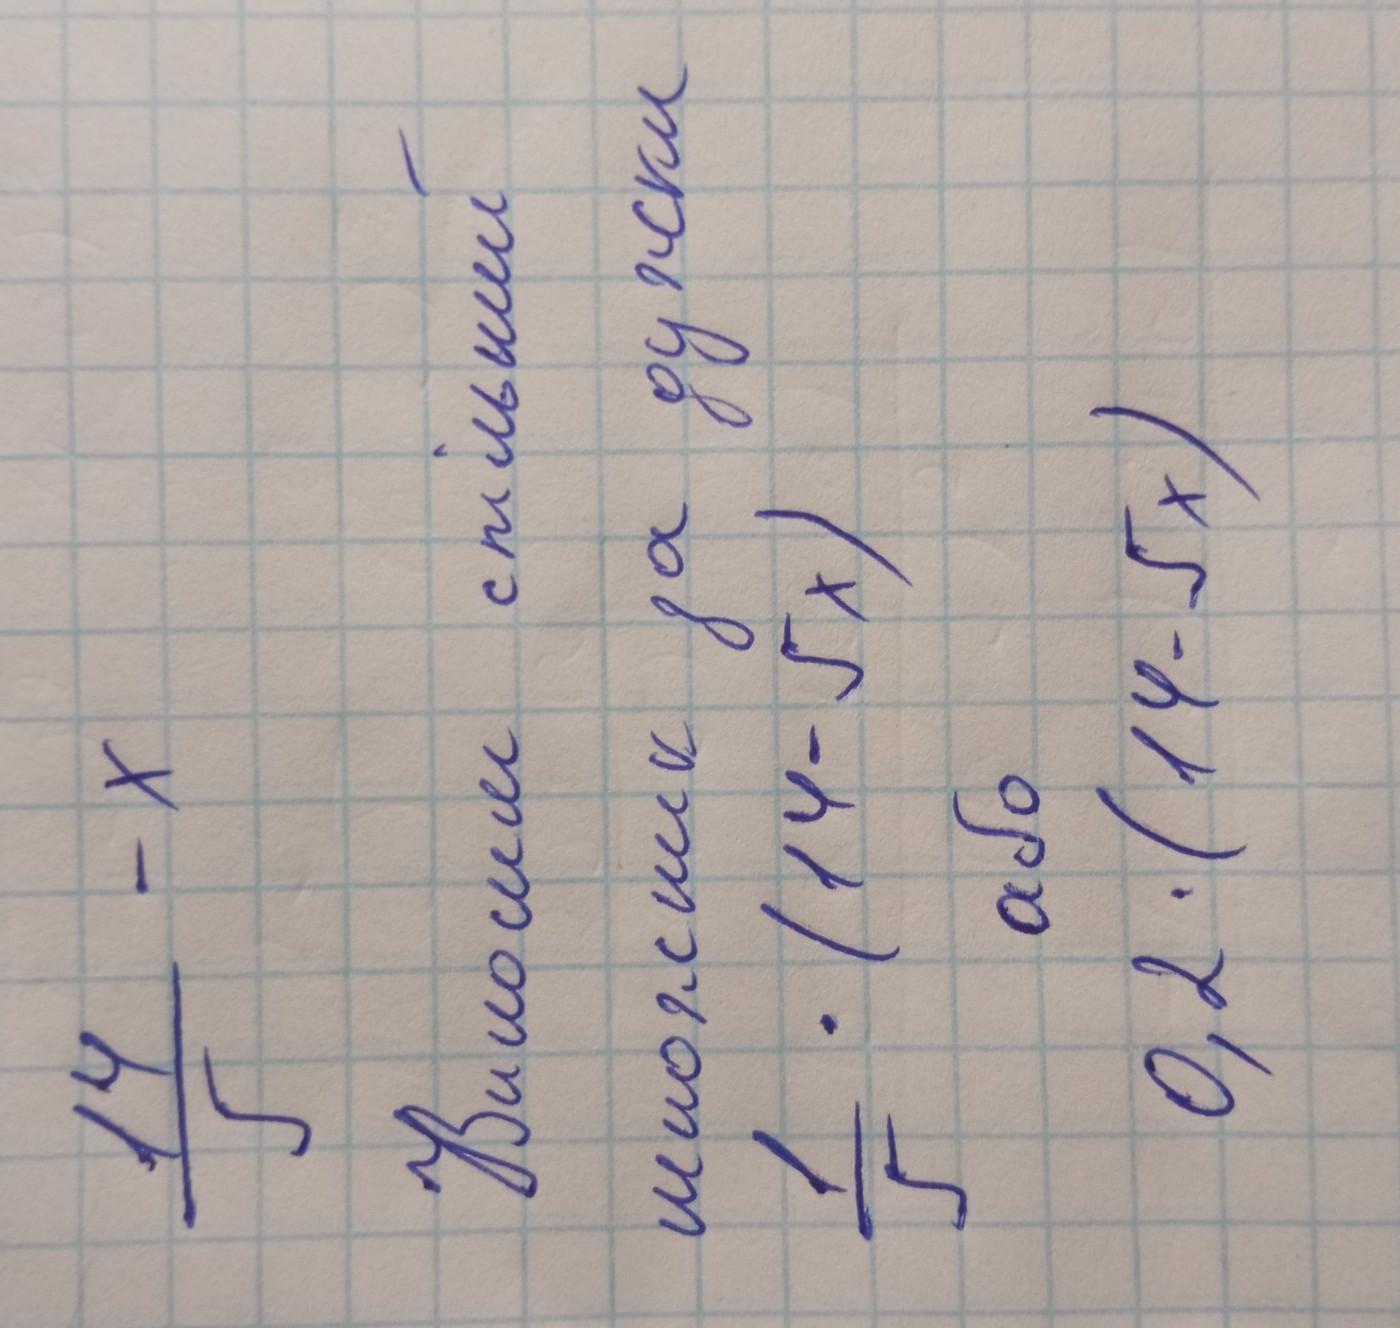 14/5 - x
Виносим спільний
множник за дужки
1/5 · (14 - 5x)
або
0,2 · (14 - 5x)